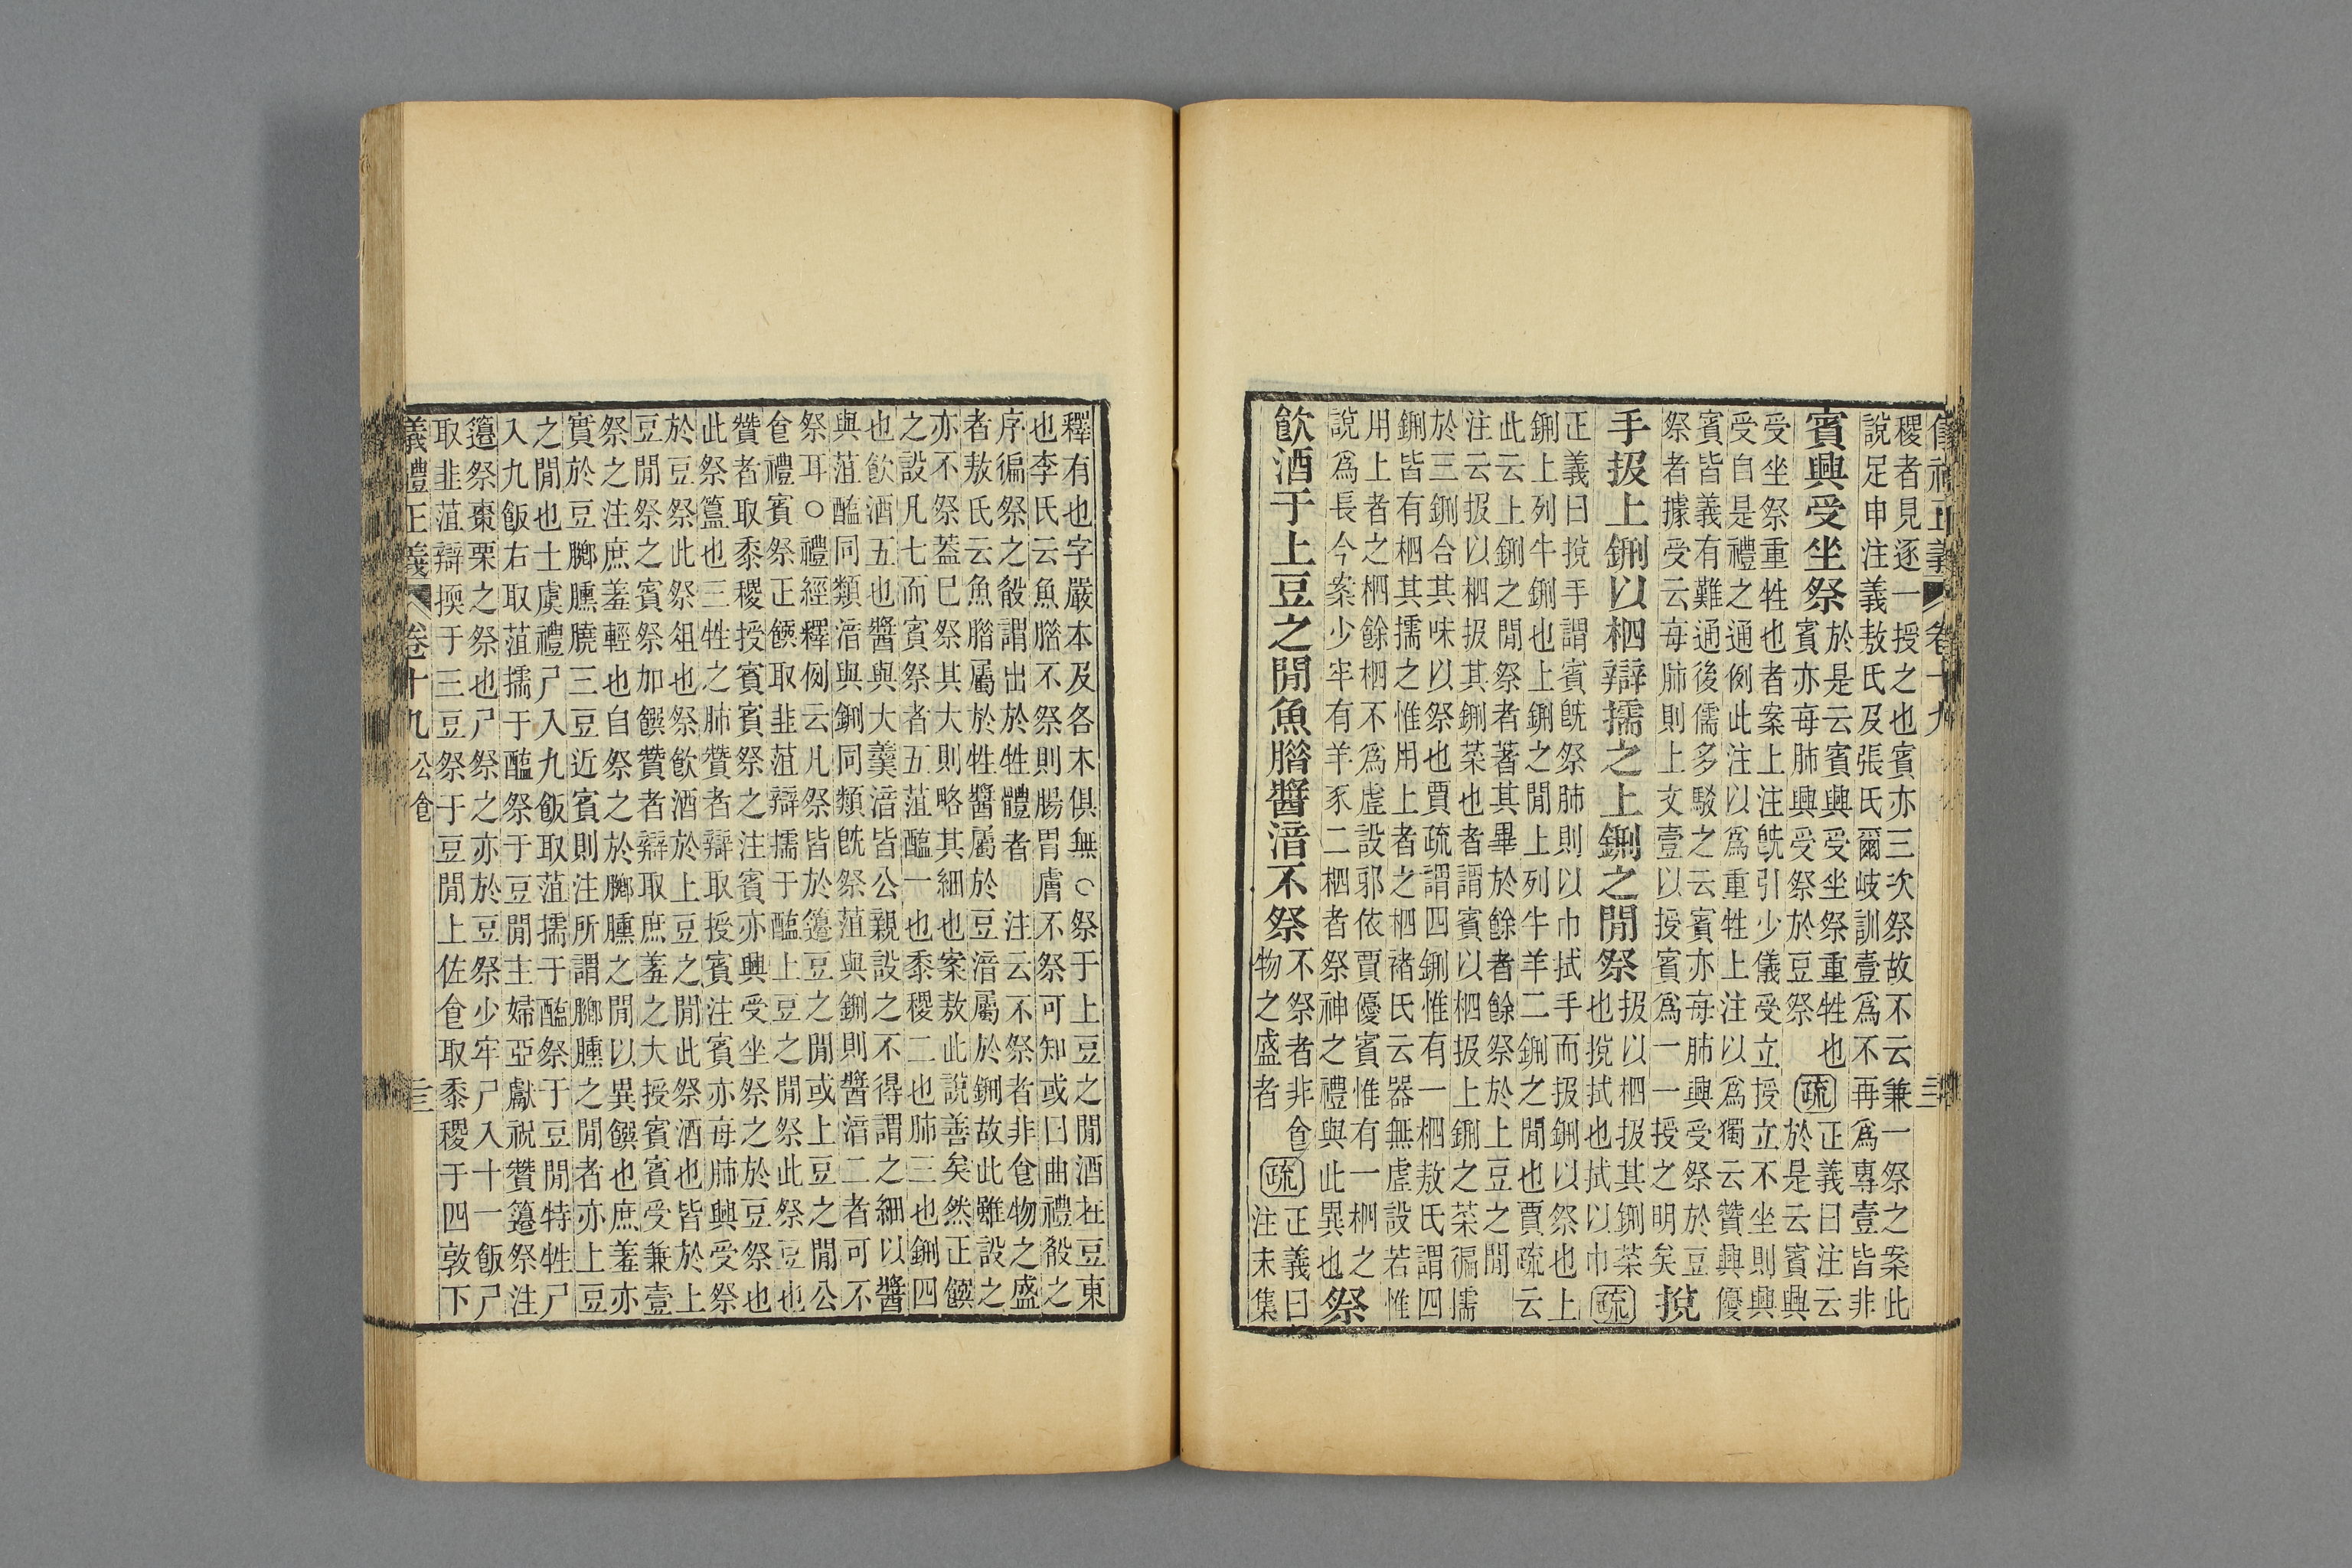 儀禮正義 卷十九 三
稷者見逐一授之也賓亦三次祭故不云兼一祭之案此
說足申注義敖氏及張氏爾岐訓壹爲不再爲專壹皆非
賓興受坐祭
於是云賓興受坐祭重牲也
賓亦每肺興受祭於豆祭
疏
正義曰注云
於是云賓興
受坐祭重牲也者案上注旣引少儀受立授立不坐則興
受自是禮之通例此注以爲重牲上注以爲獨云贊興優
賓皆義有難通後儒多駁之云賓亦每肺興受祭於豆
祭者據受云每肺則上文壹以授賓爲一一授之明矣
挩
手扱上鉶以柶辯擩之上鉶之閒祭
扱以柶扱其鉶菜
也挩拭也拭以巾
疏
正義曰挩手謂賓旣祭肺則以巾拭手而扱鉶以祭也上
鉶上列牛鉶也上鉶之閒上列牛羊二鉶之閒也賈疏云
此云上鉶之閒祭者著其畢於餘者餘祭於上豆之閒
注云扱以柶扱其鉶菜也者謂賓以柶扱上鉶之菜徧擩
於三鉶合其味以祭也賈疏謂四鉶惟有一柶敖氏謂四
鉶皆有柶其擩之惟用上者之柶褚氏云器無虛設若惟
用上者之柶餘柶不爲虛設邪依賈優賓惟有一柶之
說爲長今案少牢有羊豕二柶者祭神之禮與此異也
祭
飲酒于上豆之閒魚腊醬湆不祭
不祭者非食
物之盛者
疏
正義曰
注末集
釋有也字嚴本及各木俱無○祭于上豆之閒酒在豆東
也李氏云魚腊不祭則腸胃膚不祭可知或曰曲禮殽之
序徧祭之殽謂出於牲體者 注云不祭者非食物之盛
者敖氏云魚腊屬於牲醬屬於豆湆屬於鉶故此雖設之
亦不祭蓋巳祭其大則略其細也案敖此說善矣然正饌
之設凡七而賓祭者五菹醢一也黍稷二也肺三也鉶四
也飲酒五也醬與大羹湆皆公親設之不得謂之細以醬
與菹醢同類湆與鉶同類旣祭菹與鉶則醬湆二者可不
祭耳○禮經釋例云凡祭皆於籩豆之閒或上豆之閒公
食禮賓祭正饌取韭菹辯擩于醢上豆之閒祭此祭豆也
贊者取黍稷授賓賓祭之注賓亦興受坐祭之於豆祭也
此祭簋也三牲之肺贊者辯取授賓注賓亦每肺興受祭
於豆祭此祭俎也祭飲酒於上豆之閒此祭酒也皆於上
豆閒祭之賓祭加饌贊者辯取庶羞之大授賓賓受兼壹
祭之注庶羞輕也自祭之於膷臐之閒以異饌也庶羞亦
實於豆膷臐膮三豆近賓則注所謂膷臐之閒者亦上豆
之閒也士虞禮尸入九飯取菹擩于醢祭于豆閒特牲尸
入九飯右取菹擩于醢祭于豆閒主婦亞獻祝贊籩祭注
籩祭棗栗之祭也尸祭之亦於豆祭少牢尸入十一飯尸
取韭菹辯擩于三豆祭于豆閒上佐食取黍稷于四敦下
義禮正義 卷十九公食 三